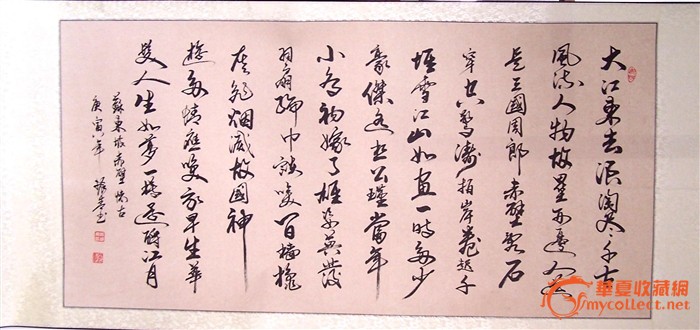 大江東去浪淘尽千古
風流人物故壘西邊人道
是三國周郎赤壁乱石
穿空驚濤拍岸卷起千
堆雪江山如画一時多少
豪傑遥想公瑾當年
小喬初嫁了雄姿英發
羽扇綸巾談笑间檣櫓
灰飛烟滅故國神
遊多情應笑我早生華
髮人生如夢一樽還酹江月
蘇東坡赤壁懷古
庚寅年 书
華夏收藏網
mycollect.net